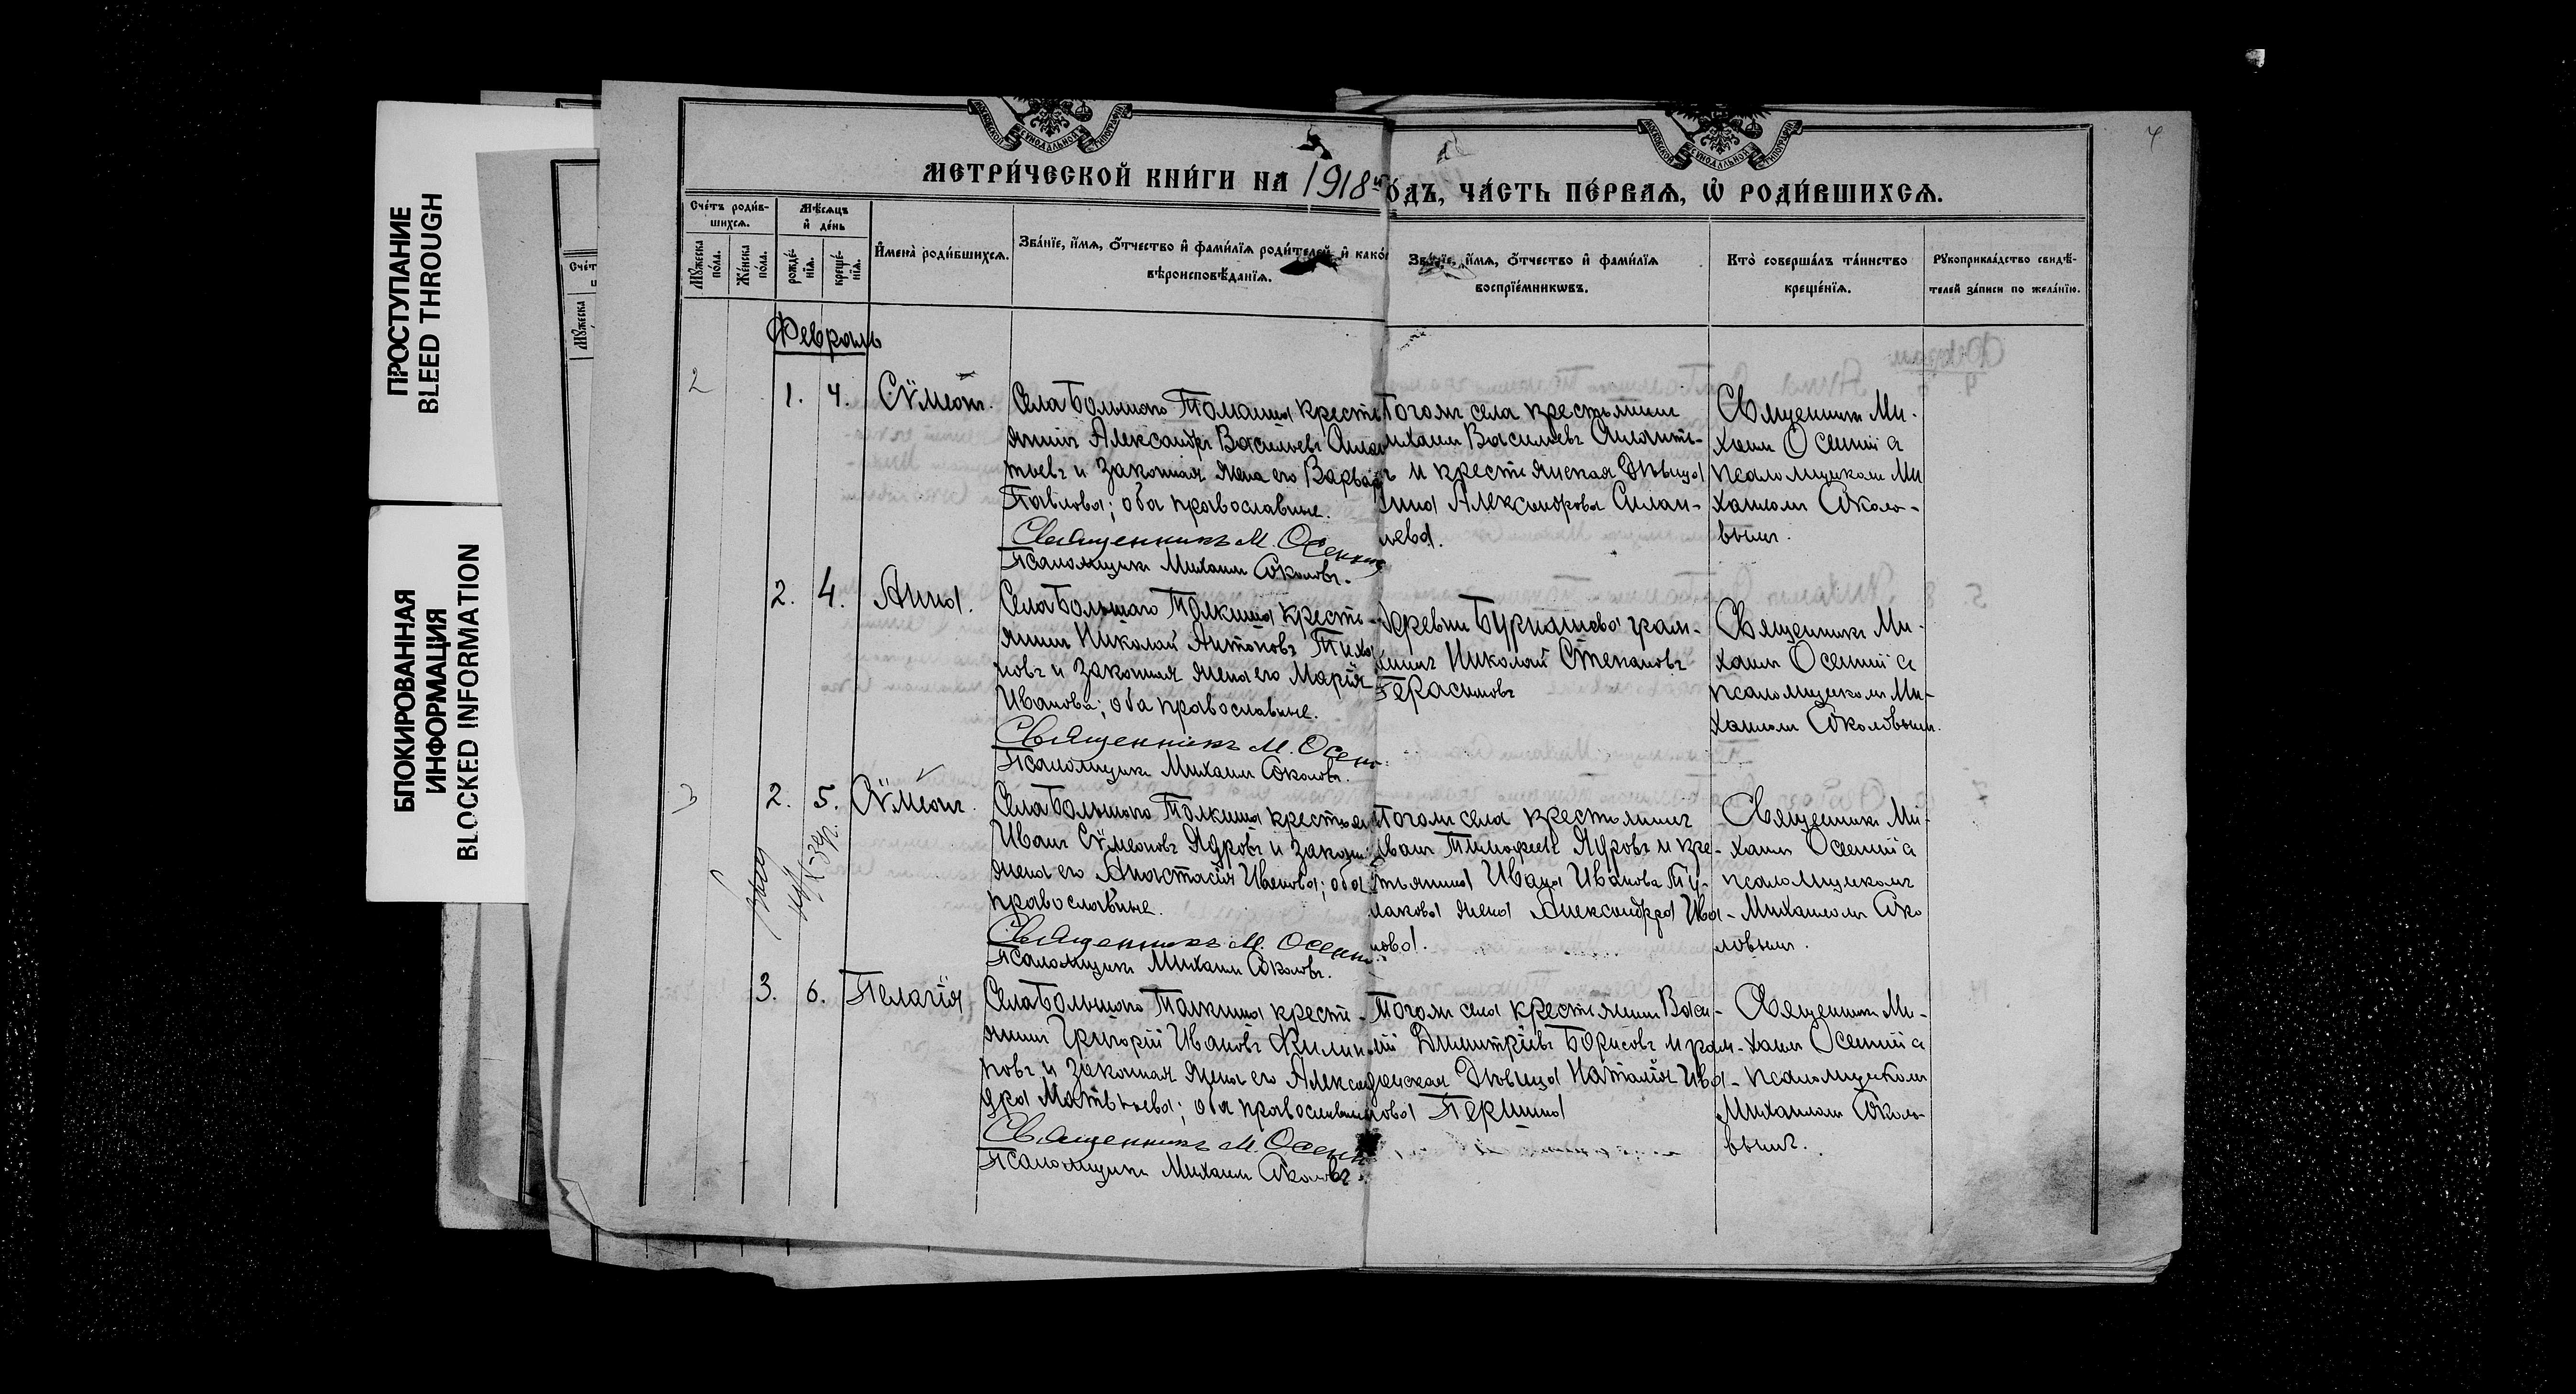 ПРОСТУПАНИЕ
BLEED THROUGH
БЛОКИРОВАННАЯ
ИНФОРМАЦИЯ
BLOCKED INFORMATION
4
МЕТРИ́ЧЕСКОЙ КНИ́ГИ НА 1918й
О́ДЪ, ЧА́СТЬ ПЕ́РВАѦ, Ѡ҆ РОДИ́ВШИХСѦ.
Сче́тъ роди́в-
шихсѧ.
Мѣ́сѧцъ
и҆ де́нь
Мꙋ́жеска по́ла.
Же́нска по́ла.
рожде́-
нїѧ.
креще́-
нїѧ.
И҆мена̀ роди́вшихсѧ.
Зва́нїе, и҆́мѧ, ѻ҆́тчество и҆ фами́лїѧ роди́телей, и҆ како́
вѣроисповѣ́данїѧ.
Зва́нїе, и҆́мѧ, ѻ҆́тчество и҆ фами́лїѧ
воспрїе́мникѡвъ.
Кто̀ соверша́лъ та́инство
креще́нїѧ.
Рꙋкоприкла́дство свидѣ́-
телей за́писи по жела́нїю.
Февраль
2
1. 4. Сѵмеонъ.
Села Большого Толкиша кресть
янинъ Александръ Васильевъ Силан
тьевъ и законная жена его Варвар
Павлова; оба православные.
Священникъ М. Осенний
Псаломщикъ Михаилъ Соколовъ.
Тогожъ села крестьянинъ
Михаилъ Васильевъ Силанть-
въ и крестьянская дѣвица
Анна Александрова Силан-
тьева.
Священникъ Ми-
хаилъ Осенний с
псаломщикомъ Ми
хаиломъ Соколо-
вымъ.
2. 4. Анна.
Села Большого Толкиша кресть-
янинъ Николай Антоновъ Тихо
новъ и законная жена его Марія
Иванова; оба православные.
Священникъ М. Осенн
Псаломщикъ Михаилъ Соколовъ.
деревни Бурнашева граж-
данинъ Николай Степановъ
Герасимовъ
Священникъ Ми-
хаилъ Осенний с
псаломщикомъ Ми-
хаиломъ Соколовымъ.
3
2. 5. Сѵмеонъ.
Села Большого Толкиша крестьян
Иванъ Сѵмеоновъ Ядровъ и законн
жена его Анастасія Иванова; оба
православные.
Священникъ М. Осенн
Псаломщикъ Михаилъ Соколовъ.
Тогожъ села крестьянинъ
Иванъ Тимофеевъ Ядровъ и кре-
стьянина Ивана Иванова Ту-
макова жена Александра Ива-
нова.
Священникъ Ми-
хаилъ Осенний с
псаломщикомъ
Михаиломъ Соко
ловымъ.
3. 6. Пелагія
Села Большого Толкиша кресть-
янинъ Григорій Ивановъ Филип
повъ и законная жена его Алексан
дра Матвѣева; оба православные
Священникъ М. Осенн
Псаломщикъ Михаилъ Соколовъ.
Тогожъ села крестьянинъ Васи-
лій Димитріевъ Борисовъ и граж-
данская дѣвица Наталія Ива-
нова Першина
Священникъ Ми-
хаилъ Осенний с
псаломщикомъ
Михаиломъ Соколо-
вымъ.